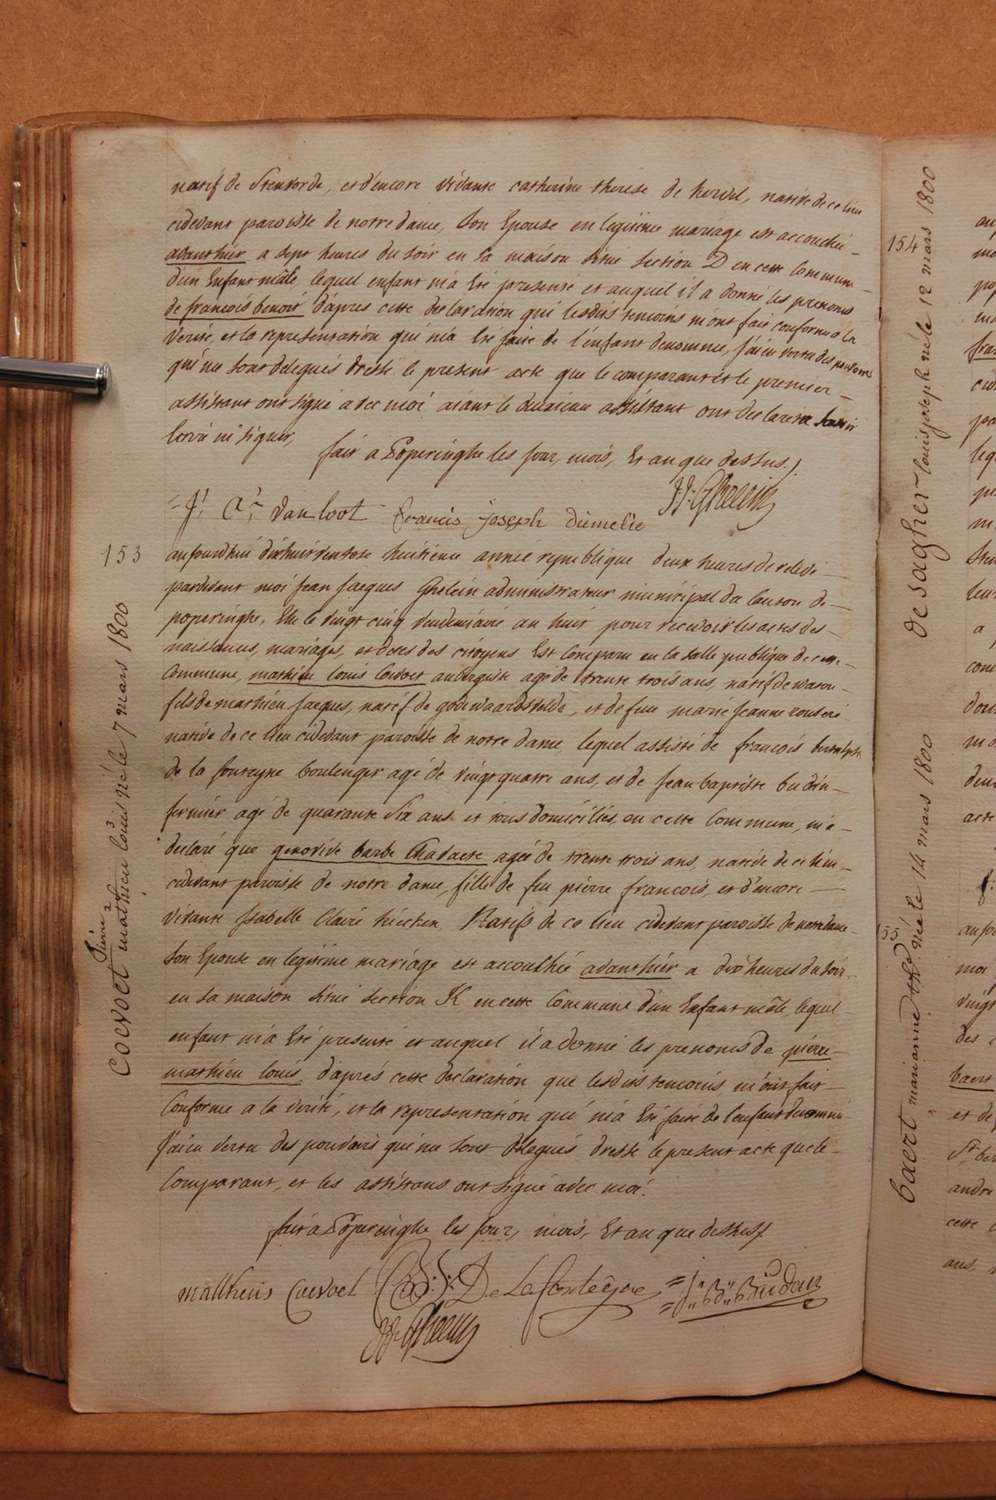 natif de Steuvorde, et d'encore vivante catherine therese de hervil, native de ce lieu
cidevant paroisse de notre dame, son Epouse en legitime mariage est accouchée
avanthier a sept heures du soir en sa maison situé section D en cette Commune
d'un Enfant mâle, lequel enfant m'a Eté presenté et auquel il a donné les prenoms
de francois benoit d'apres cette declaration que lesdits temoins m'ont fait conforme a la
verité, et la representation qui m'a Eté faite de l'enfant denommé, j'ai en vertu des pouvoirs
qui me sont delegués dressé le present acte que le comparant et le premier
assistant ont signé avec moi aiant le deuxieme assistant ont declaré ne savoir
ecrire ni signer,
fait a Poperinghe les jour, mois, Et an que dessus ).
J: Cr. Van loot francis joseph dumelie JJ: Ghelein
153
aujourdhui dixhuit ventose huitieme année republique deux heures de relevé
pardevant moi Jean Jacques Ghelein administrateur municipal du Canton de
poperinghe, Elu le vingt cinq vendemiaire an huit pour recevoir les actes des
naissances, mariages, et deces des citoyens Est Comparu en la salle publique de cette
Commune, mathieu louis Coevoet aubergiste agé de trente trois ans, natif de watou
fils de mathieu Jacques, natif de godewaersvelde, et de feue marie Jeanne
native de ce lieu cidevant paroisse de notre dame lequel assisté de francois
de la fonteyne boulenger agé de vingt quatre ans, et de Jean baptiste budin
fermier agé de quarante six ans et tous domiciliés en cette Commune, m'a
declaré que genovive barbe agée de trente trois ans, native de ce lieu
cidevant paroisse de notre dame, fille de feu pierre francois, et d'encore
vivante Isabelle Claire Natif de ce lieu cidevant paroisse de notre dame
son Epouse en legitime mariage est accouchée avanthier a dix heures du soir
en sa maison situé section K en cette Commune d'un Enfant mâle, lequel
enfant m'a Eté presenté et auquel il a donné les prenoms de pierre
mathieu louis, d'apres cette declaration que lesdits temoins m'ont fait
Conforme a la verité, et la representation qui m'a Eté faite de l'enfant denommé
J'ai en vertu des pouvoirs qui me sont delegués dressé le present acte que le
Comparant, et les assistans ont signé avec moi.
fait a Poperinghe les jour, mois, Et an que dessus
Mattheus Coevoet De La Fonteyne J: B: Budin
JJ: Ghelein
Pierre 2
Coevoet mathieu louis 3 né le 7 mars 1800
154
de Sagher louis joseph né le 12 mars 1800
155
Baert marianne née le 14 mars 1800